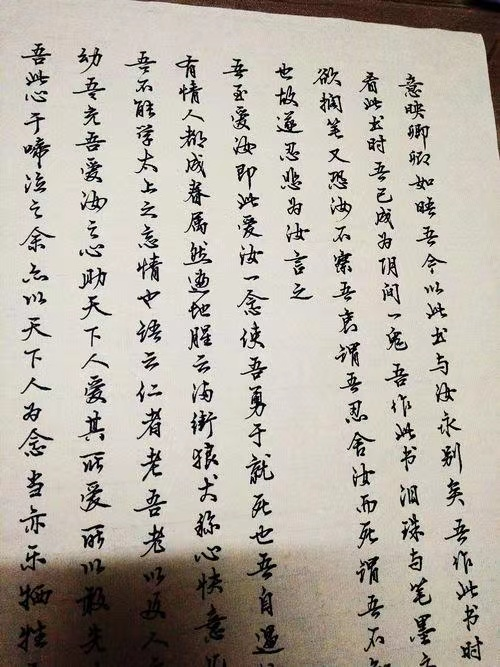 意映卿卿如晤吾今以此书与汝永别矣吾作此书时
看此书时吾已成为阴间一鬼吾作此书泪珠与笔墨
欲搁笔又恐汝不察吾衷谓吾忍舍汝而死谓吾不
也故遂忍悲为汝言之
吾至爱汝即此爱汝一念使吾勇于就死也吾自遇
有情人都成眷属然遍地腥云满街狼犬称心快意
吾不能学太上之忘情也语云仁者老吾老以及人
幼吾充吾爱汝之心助天下人爱其所爱所以敢先
吾此心于啼泣之余亦以天下人为念当亦乐牺牲